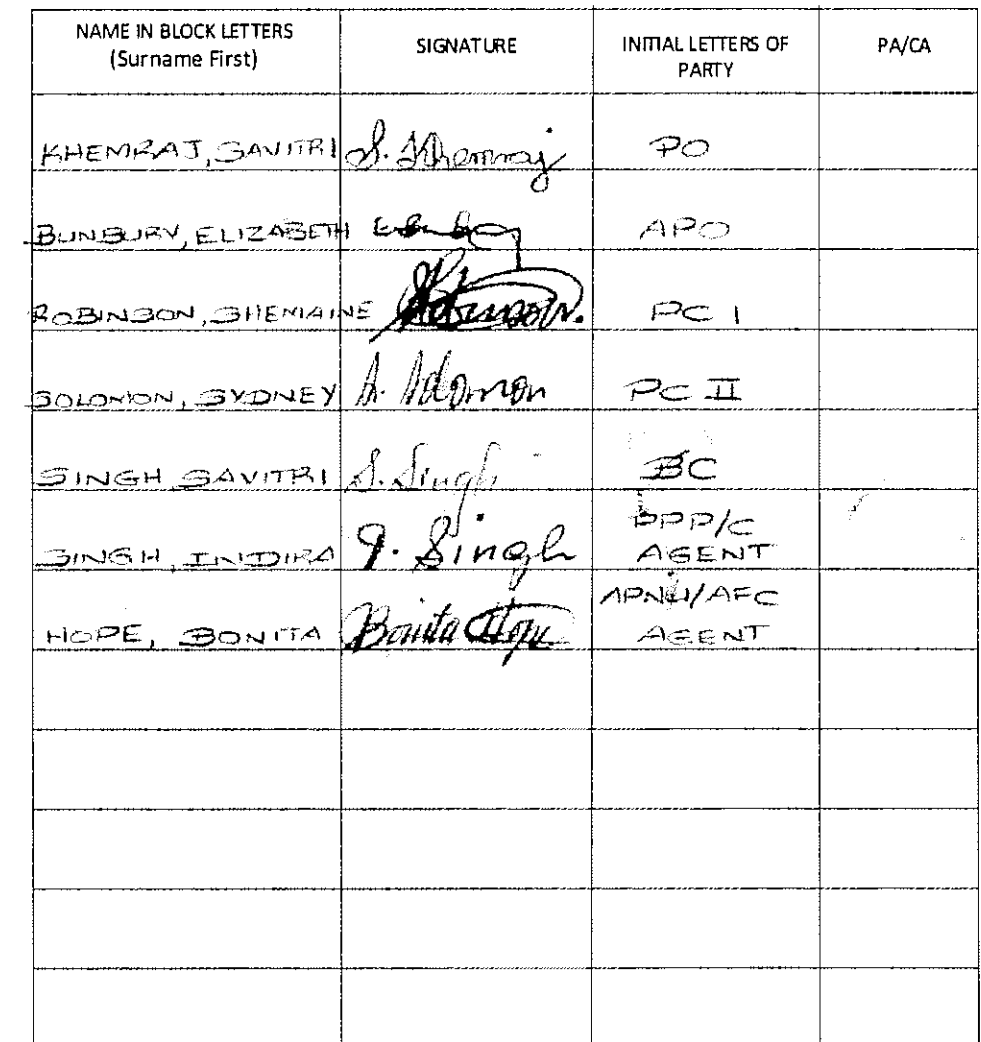 NAME IN BLOCK LETTERS
(Surname First)
SIGNATURE
INITIAL LETTERS OF
PARTY
PA/CA
KHEMRAJ, SAVITRI S. Khemraj PO
BUNBURY, ELIZABETH APO
ROBINSON, SHEMAINE Robinson. PC I
SOLOMON, SYDNEY S. Solomon PC II
SINGH, SAVITRI S. Singh BC
SINGH, INDIRA I. Singh PPP/C
AGENT
APNU/AFC
HOPE, BONITA Bonita Hope AGENT